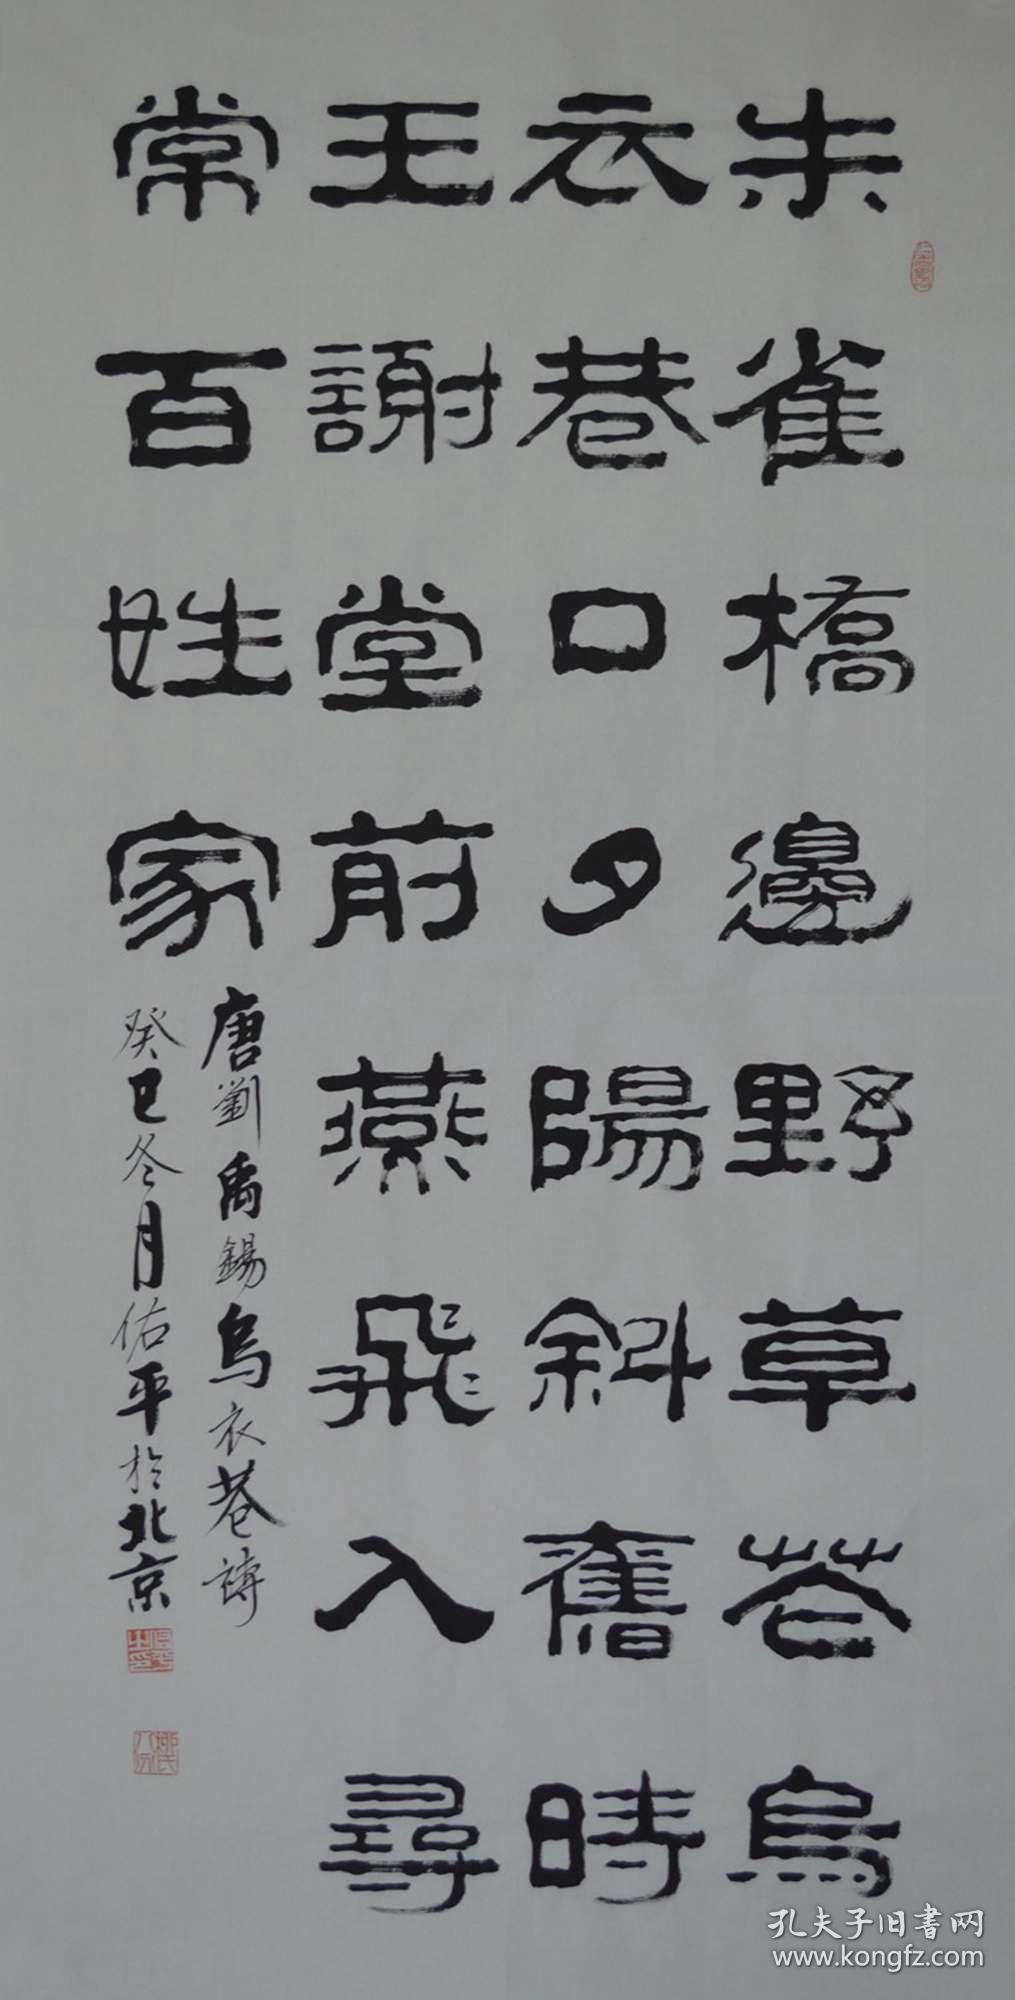 朱雀橋邊野草花烏
衣巷口夕陽斜舊時
王謝堂前燕飛入尋
常百姓家
唐劉禹錫烏衣巷詩
癸巳冬月佑平於北京
孔夫子旧書网
www.kongfz.com